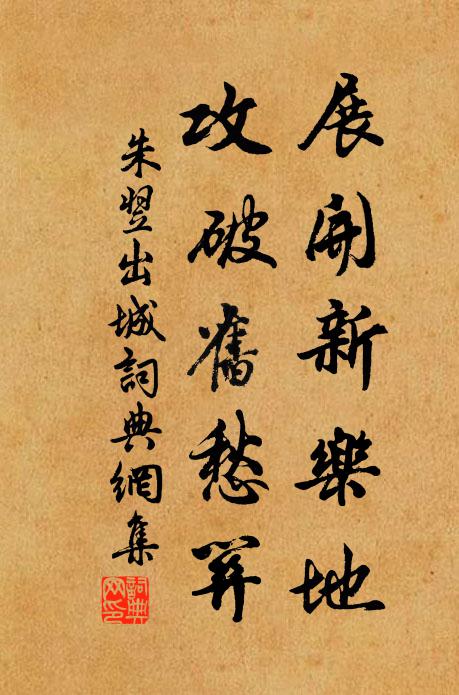 展開新樂地
攻破舊愁
朱翌出城詞典網集
詞典網印